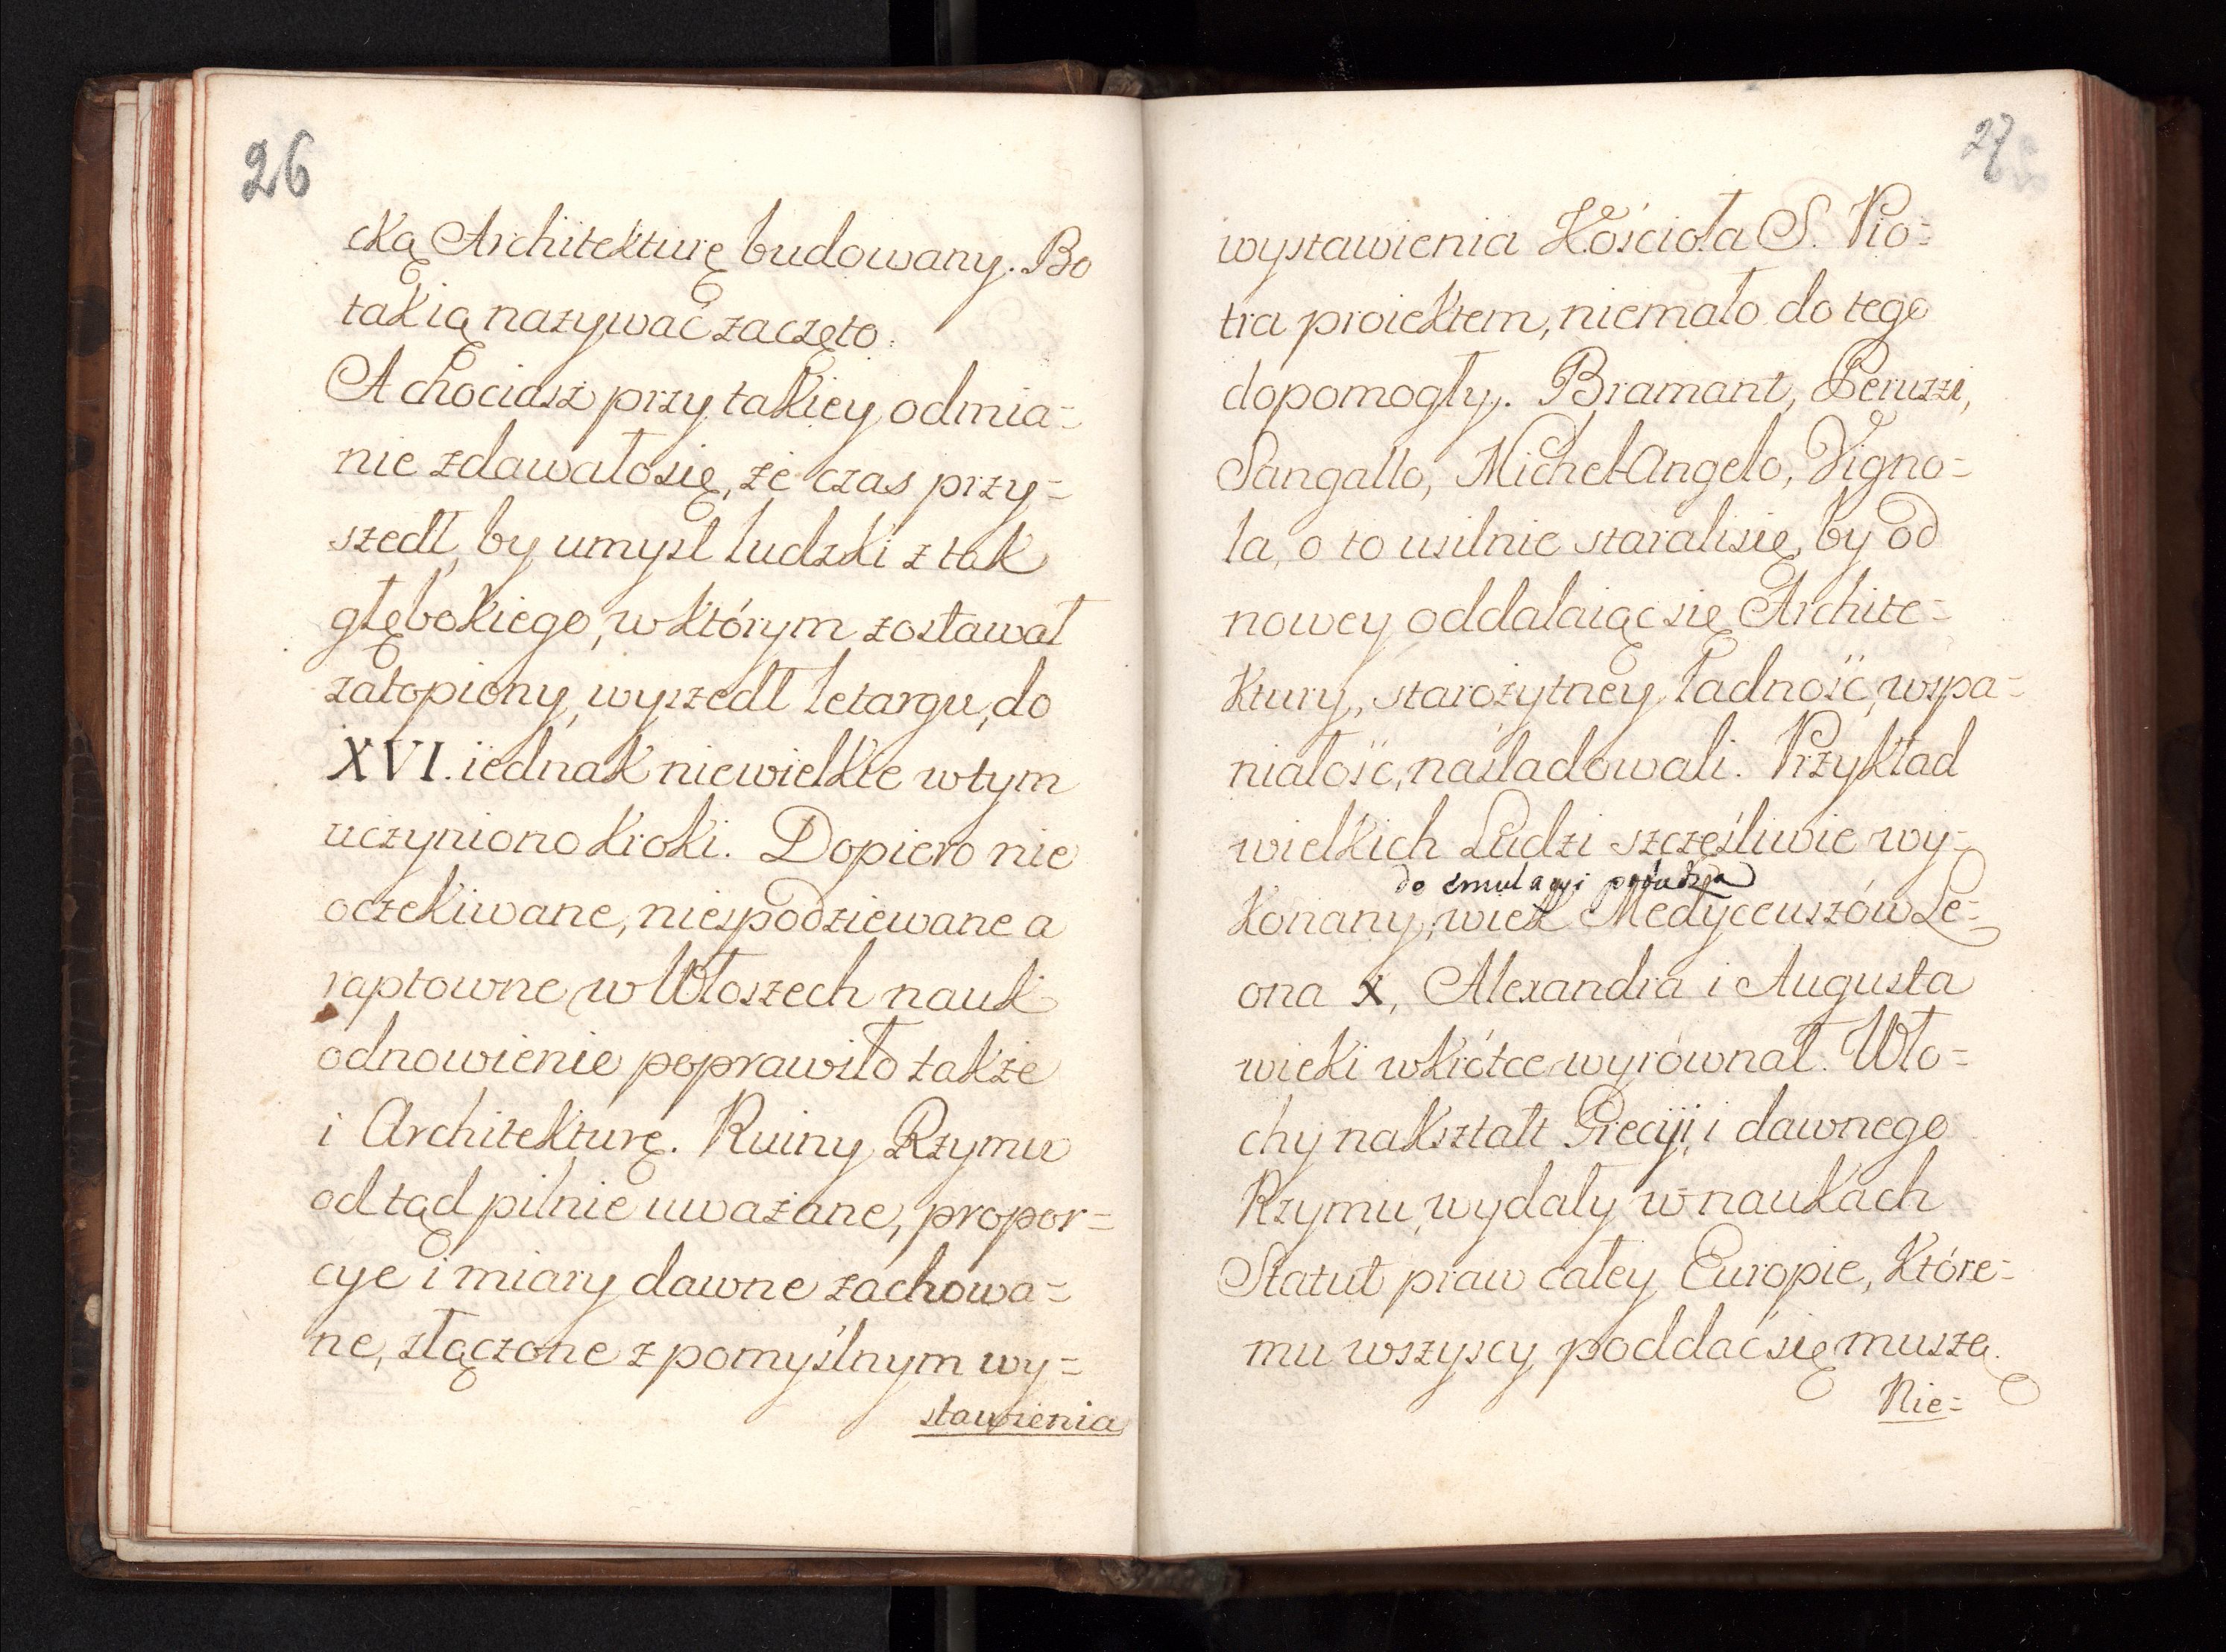 26
cką Architekturę budowany. Bo
takią nazywać zaczęto.
A chociasz przy takiey odmia=
nie zdawałosię, że czas przy=
szedł, by umysł ludzki z tak
głębokiego, w którym zostawał
zatopiony, wyszedł letargu, do
XVI. iednak niewielkie w tym
uczyniono kroki. Dopiero nie
oczekiwane, niespodziewane a
raptowne w Włoszech nauk
odnowienie poprawiło także
i Architekturę. Ruiny Rzymu
od tąd pilnie uważane, propor=
cye i miary dawne zachowa=
ne, złączone z pomyślnym wy=
stawienia
27
wystawienia Kościoła S. Pio=
tra proiektem, niemało do tego
dopomogły. Bramant, Peruzzi,
Sangallo, Michel-Angelo, Vigno=
la, o to usilnie staralisię, by od
nowey oddalaiąc się Archite=
ktury, starożytney ładność, wspa=
niałość, naśladowali. Przykład
wielkich Ludzi szczęśliwie wy=
do emulacyi pobudza
konany, wiek Medyceuszów Le=
ona X, Alexandra i Augusta
wieki wkrótce wyrównał. Wło=
chy nakształt Grecyi, i dawnego
Rzymu, wydały w naukach
Statut praw całey Europie, które=
mu wszyscy poddać się muszą.
Nie=